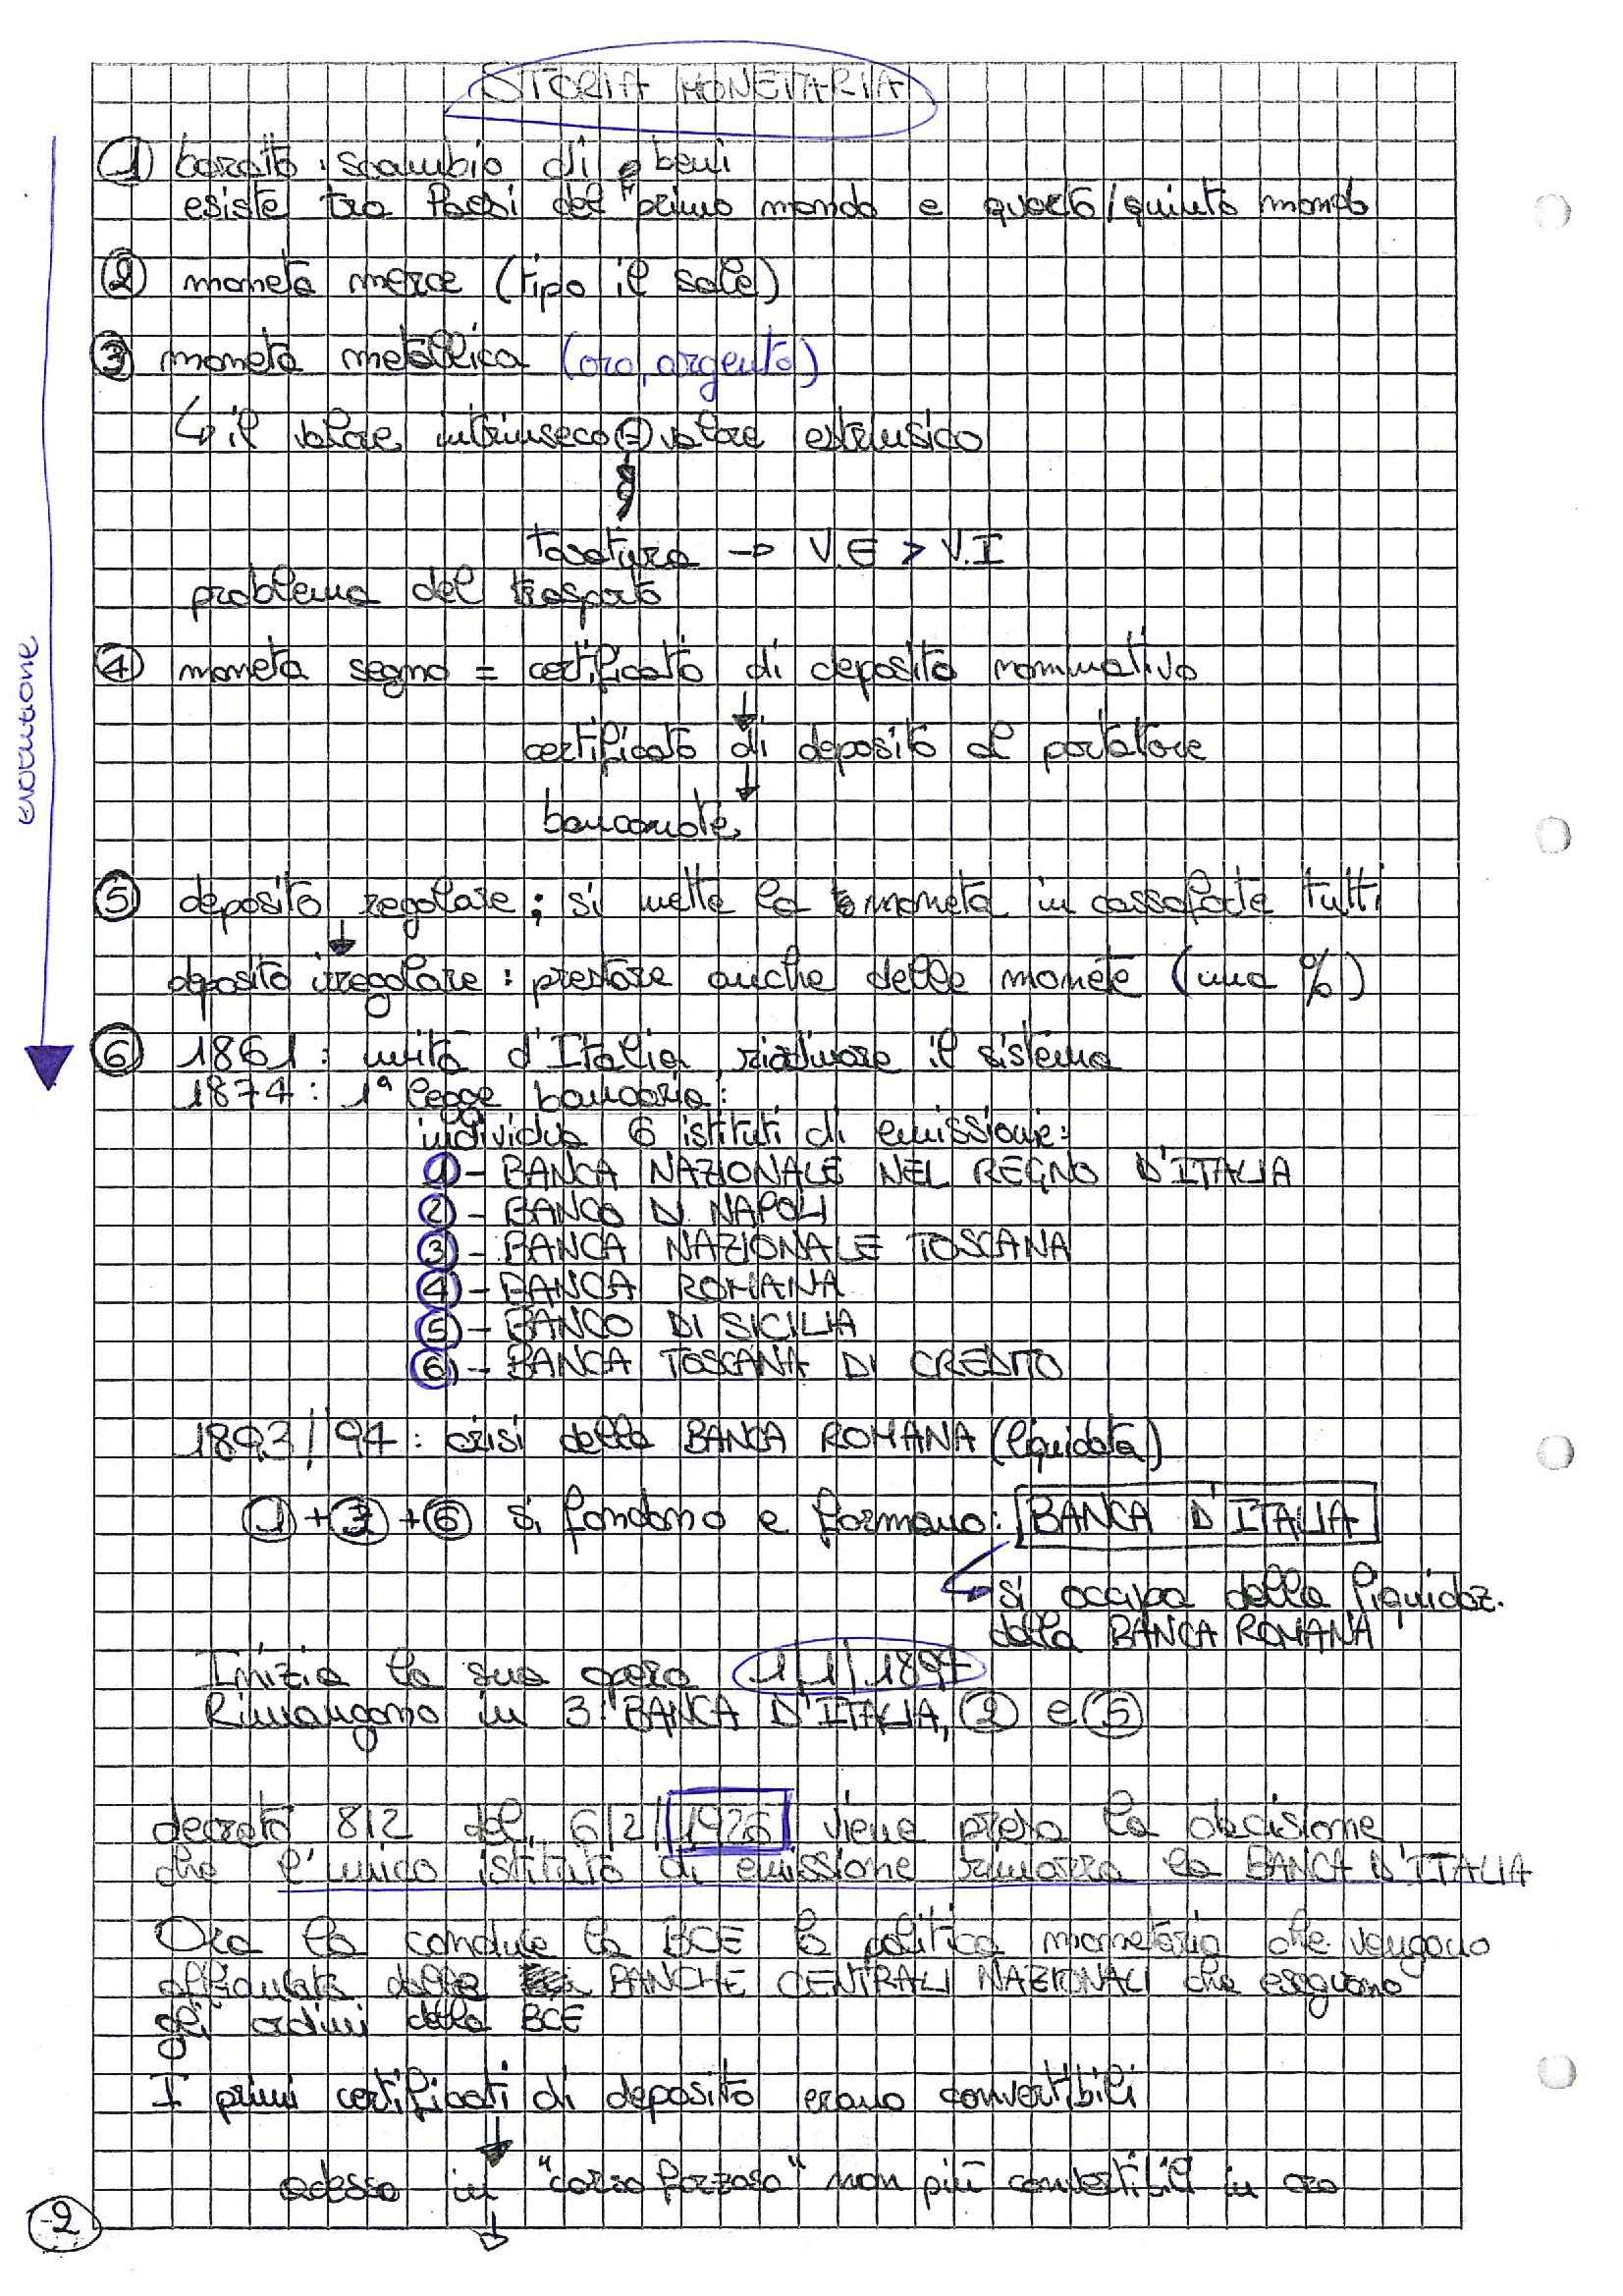 STORIA MONETARIA
① baratto: scambio di beni
esiste tra Paesi del primo mondo e quarto/quinto mondo
② moneta merce (tipo il sale)
③ moneta metallica (oro, argento)
↳ il valore intrinseco = valore estrinsico
tosatura → V.E > V.I
problema del trasporto
④ moneta segno = certificato di deposito nominativo
↓
certificato di deposito al portatore
↓
banconote
⑤ deposito regolare: si mette la moneta in cassaforte tutti
↓
deposito irregolare: prestare anche delle monete (una %)
evoluzione
⑥ 1861: unità d'Italia, riordinare il sistema
1874: 1ª legge bancaria:
individua 6 istituti di emissione:
① - BANCA NAZIONALE NEL REGNO D'ITALIA
② - BANCO DI NAPOLI
③ - BANCA NAZIONALE TOSCANA
④ - BANCA ROMANA
⑤ - BANCO DI SICILIA
⑥ - BANCA TOSCANA DI CREDITO
1893/94: crisi della BANCA ROMANA (liquidata)
① + ③ + ⑥ si fondono e formano: BANCA D'ITALIA
si occupa della liquidaz.
della BANCA ROMANA
Inizia la sua opera 1/1/1894
Rimangono in 3: BANCA D'ITALIA, ② e ⑤
decreto 812 del 6/2/1926 viene presa la decisione
che l'unico istituto di emissione rimarrà la BANCA D'ITALIA
Ora la conduce la BCE la politica monetaria che vengono
affiancate dalle BANCHE CENTRALI NAZIONALI che eseguono
gli ordini della BCE
I primi certificati di deposito erano convertibili
↓
adesso in "corso forzoso" non più convertibili in oro
↓
2